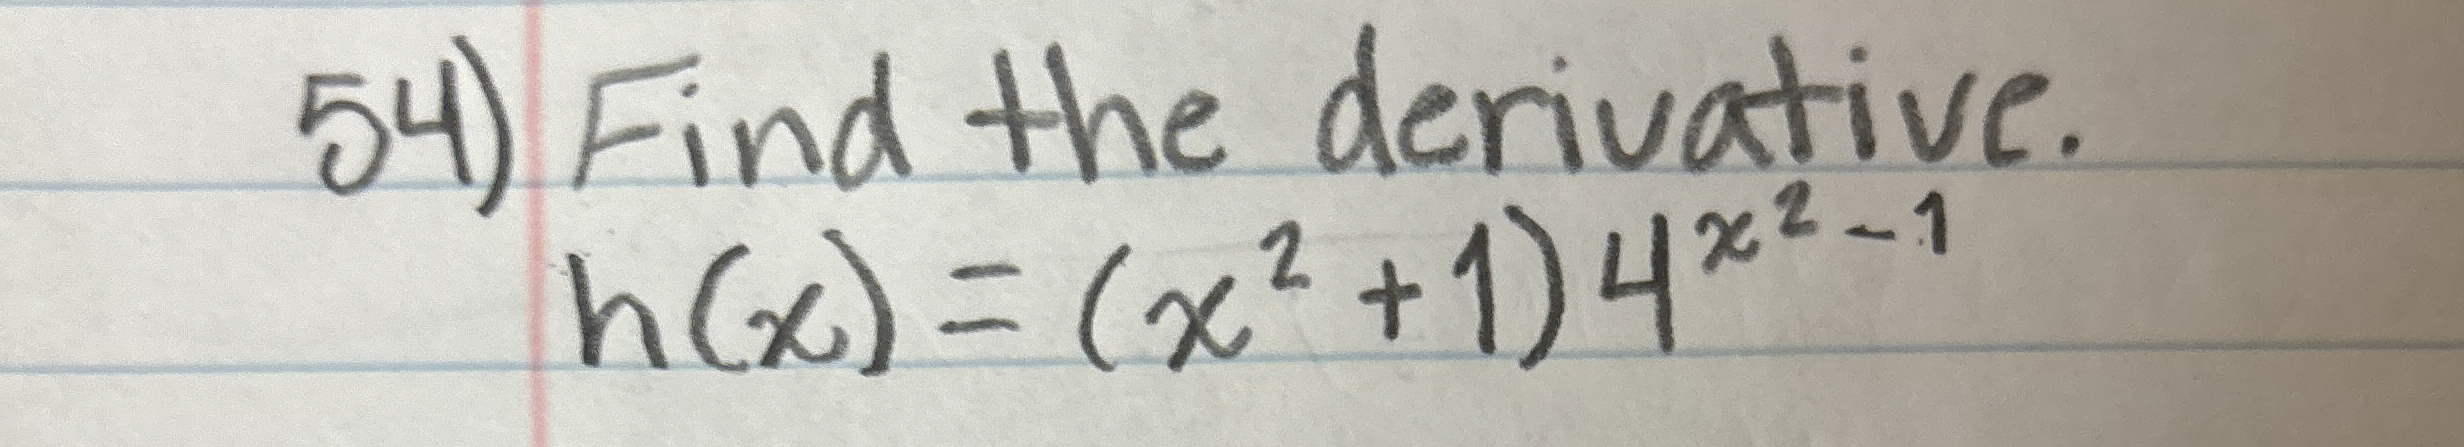 54) Find the derivative.
h(x) = (x² + 1) 4^{x² - 1}